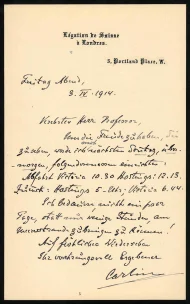 Légation de Suisse
à Londres.
3, Portland Place, W.
Freitag Abend,
3. IV. 1914.
Verehrter Herr Professor,
Um die Freude zu haben, Sie
zu sehen, werde ich nächsten Sonntag, über-
morgen, folgendermassen einrichten:
Abfahrt Victoria 10.30 Hastings: 12.13.
Zurück: Hastings 5.— Uhr, Victoria 6.44
Ich bedaure nicht ein paar
Tage, statt nur wenige Stunden, am
Meeresstrande zubringen zu können!
Auf fröhliches Wiedersehen
Ihr verehrungsvoll Ergebener
Carlin